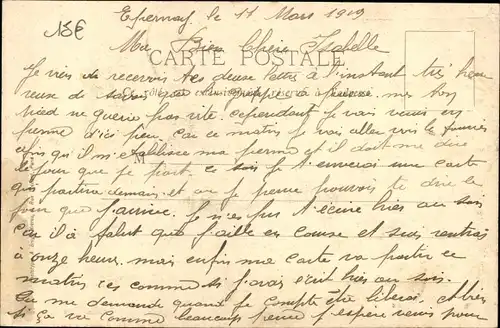 15E
Epernay, le 11 Mars 1919
Ma Bien Chère Isabelle
CARTE POSTALE
Je viens de recevoir tes deux lettres à l'instant très heu
reuse de savoir que grippe mes ton
pied ne guérie pas vite. cependant Je vais vous en
perme d'ici peu. Car ce matin Je vais aller voir le fourrier
afin qu'il m'établisse ma perme et il doit me dire
le Jour que Je part. Ce soir Je t'enverai une carte
qui partira demain et ou Je pense pouvoir te dire le
Jour que J'arrive. Je n'ai pas t'écrire hier au soir
Car il à falut que J'aille en course et suis rentrer
à onze heures. mais enfin ma carte va partir ce
matin c'es comme si J'avais écrit hier au soir.
Tu me demande quand Je compte être libérer,
si ça va comme beaucoup pense J'espère vous pour